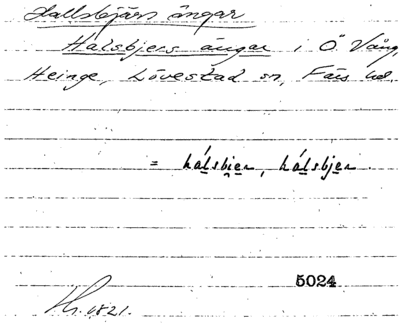 Hallsbjärs ängar
Halsbjers ängar i Ö. Vång,
Heinge, Lövestad sn, Färs hd.
= hálsbier, hálsbjer
5024
1821.